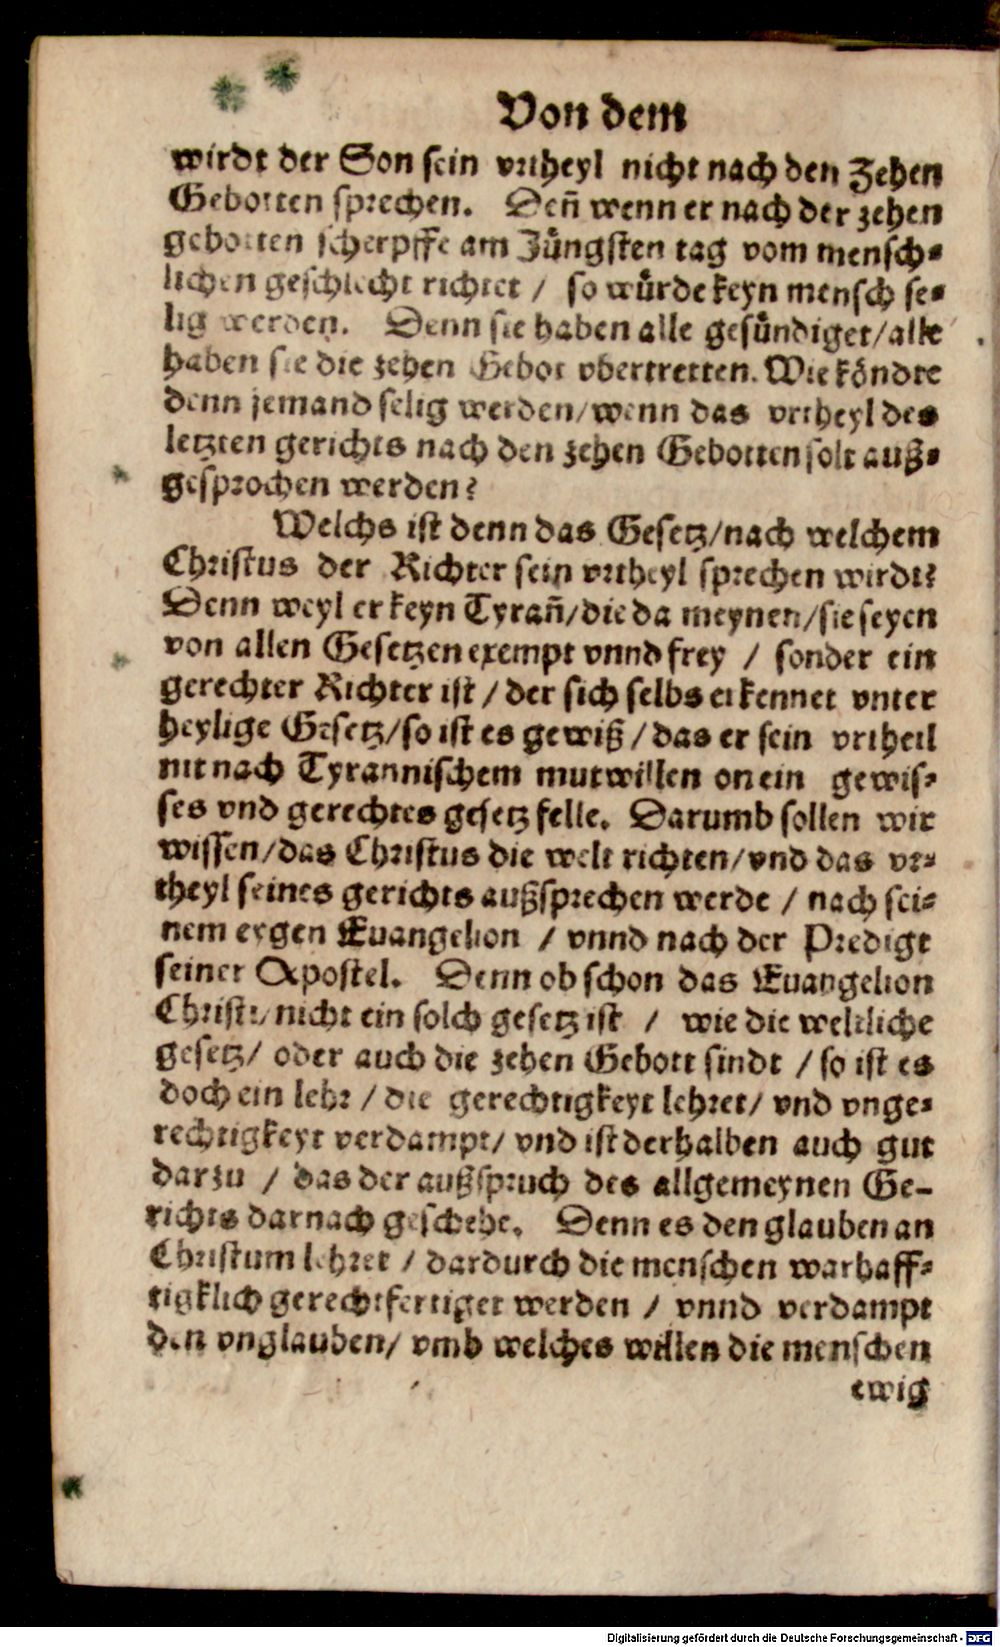 Von dem
wirdt der Son sein vrtheyl nicht nach den Zehen
Gebotten sprechen. Deñ wenn er nach der zehen
gebotten scherpffe am Jüngsten tag vom mensch-
lichen geschlecht richtet / so würde keyn mensch se-
lig werden. Denn sie haben alle gesündiget/alle
haben sie die zehen Gebot vbertretten. Wie köndte
denn jemand selig werden/wenn das vrtheyl des
letzten gerichts nach den zehen Gebotten solt auß-
gesprochen werden?
Welchs ist denn das Gesetz/nach welchem
Christus der Richter sein vrtheyl sprechen wirdt?
Denn weyl er keyn Tyrañ/die da meynen/sie seyen
von allen Gesetzen exempt vnnd frey / sonder ein
gerechter Richter ist / der sich selbs erkennet vnter
heylige Gesetz/so ist es gewiß / das er sein vrtheil
nit nach Tyrannischem mutwillen on ein gewis-
ses vnd gerechtes gesetz felle. Darumb sollen wir
wissen/das Christus die welt richten/vnd das vr-
theyl seines gerichts außsprechen werde / nach sei-
nem eygen Euangelion / vnnd nach der Predigt
seiner Apostel. Denn ob schon das Euangelion
Christi/nicht ein solch gesetz ist / wie die weltliche
gesetz/ oder auch die zehen Gebott sindt / so ist es
doch ein lehr / die gerechtigkeyt lehret/ vnd vnge-
rechtigkeyt verdampt/ vnd ist derhalben auch gut
darzu / das der außspruch des allgemeynen Ge-
richts darnach geschehe. Denn es den glauben an
Christum lehret / dardurch die menschen warhaff-
tigklich gerechtfertiget werden / vnnd verdampt
den vnglauben/ vmb welches willen die menschen
ewig
Digitalisierung gefördert durch die Deutsche Forschungsgemeinschaft - DFG